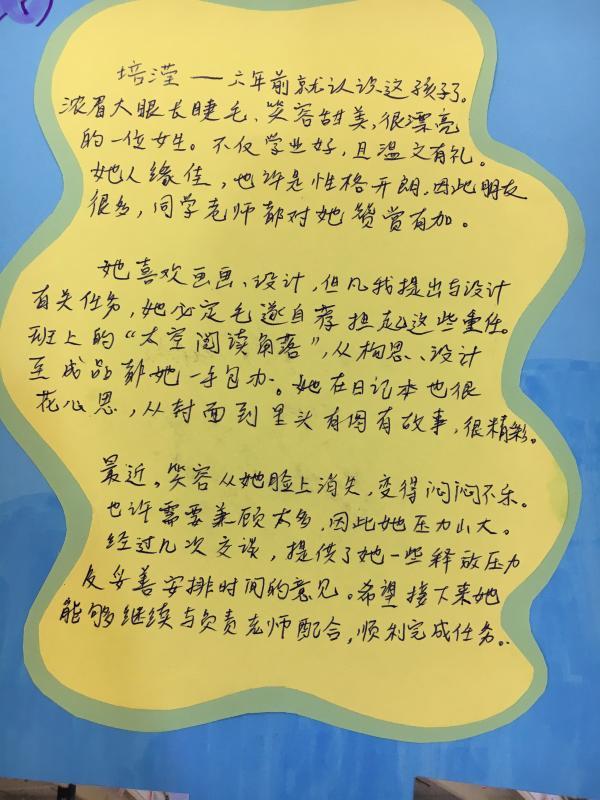 培滢 — 六年前就认识这孩子了。
浓眉大眼长睫毛、笑容甜美,很漂亮
的一位女生。不仅学业好,且温文有礼。
她人缘佳,也许是性格开朗,因此朋友
很多,同学老师都对她赞赏有加。
她喜欢画画、设计,但凡我提出与设计
有关任务,她必定毛遂自荐担起这些重任。
班上的“太空阅读角落”,从构思、设计
至成品都她一手包办。她在日记本也很
花心思,从封面到里头有图有故事,很精彩。
最近,笑容从她脸上消失,变得闷闷不乐。
也许需要兼顾太多,因此她压力山大。
经过几次交谈,提供了她一些释放压力
及妥善安排时间的意见。希望接下来她
能够继续与负责老师配合,顺利完成任务。